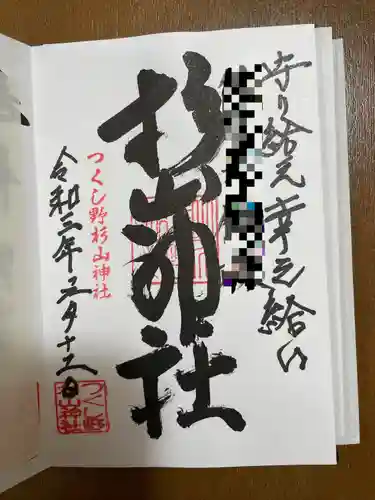 守り給え幸え給い
杉山神社
つくし野杉山神社
令和三年三月十三日
つくし野
杉山神社